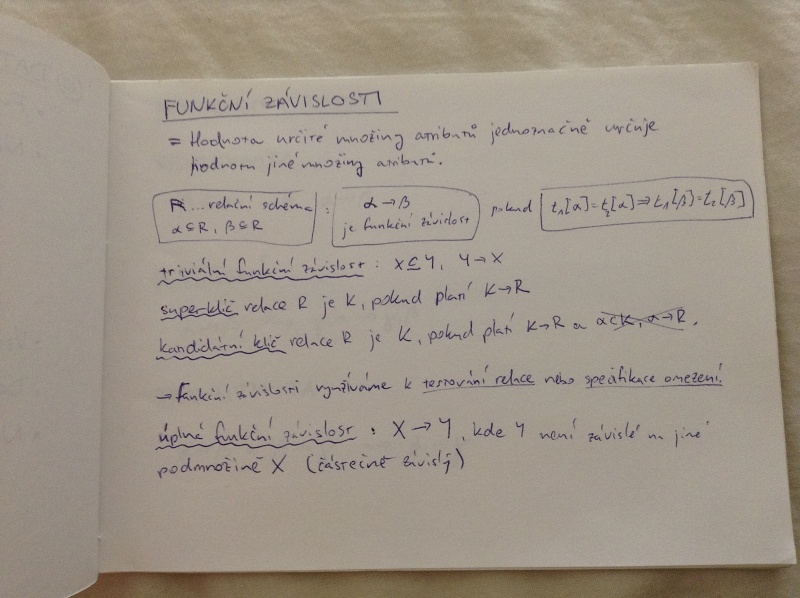 FUNKČNÍ ZÁVISLOSTI
= Hodnota určité množiny atributů jednoznačně určuje
hodnotu jiné množiny atributů.
R...relační schéma : α → β pokud t₁[α]=t₂[α]⇒t₁[β]=t₂[β]
α⊆R, β⊆R je funkční závislost
triviální funkční závislost : X⊆Y, Y→X
superklíč relace R je K, pokud platí K→R
kandidátní klíč relace R je K, pokud platí K→R a α⊂K, α→R.
→ Funkční závislosti využíváme k testování relace nebo specifikace omezení.
úplná funkční závislost : X → Y, kde Y není závislé na jiné
podmnožině X (částečně závislý)